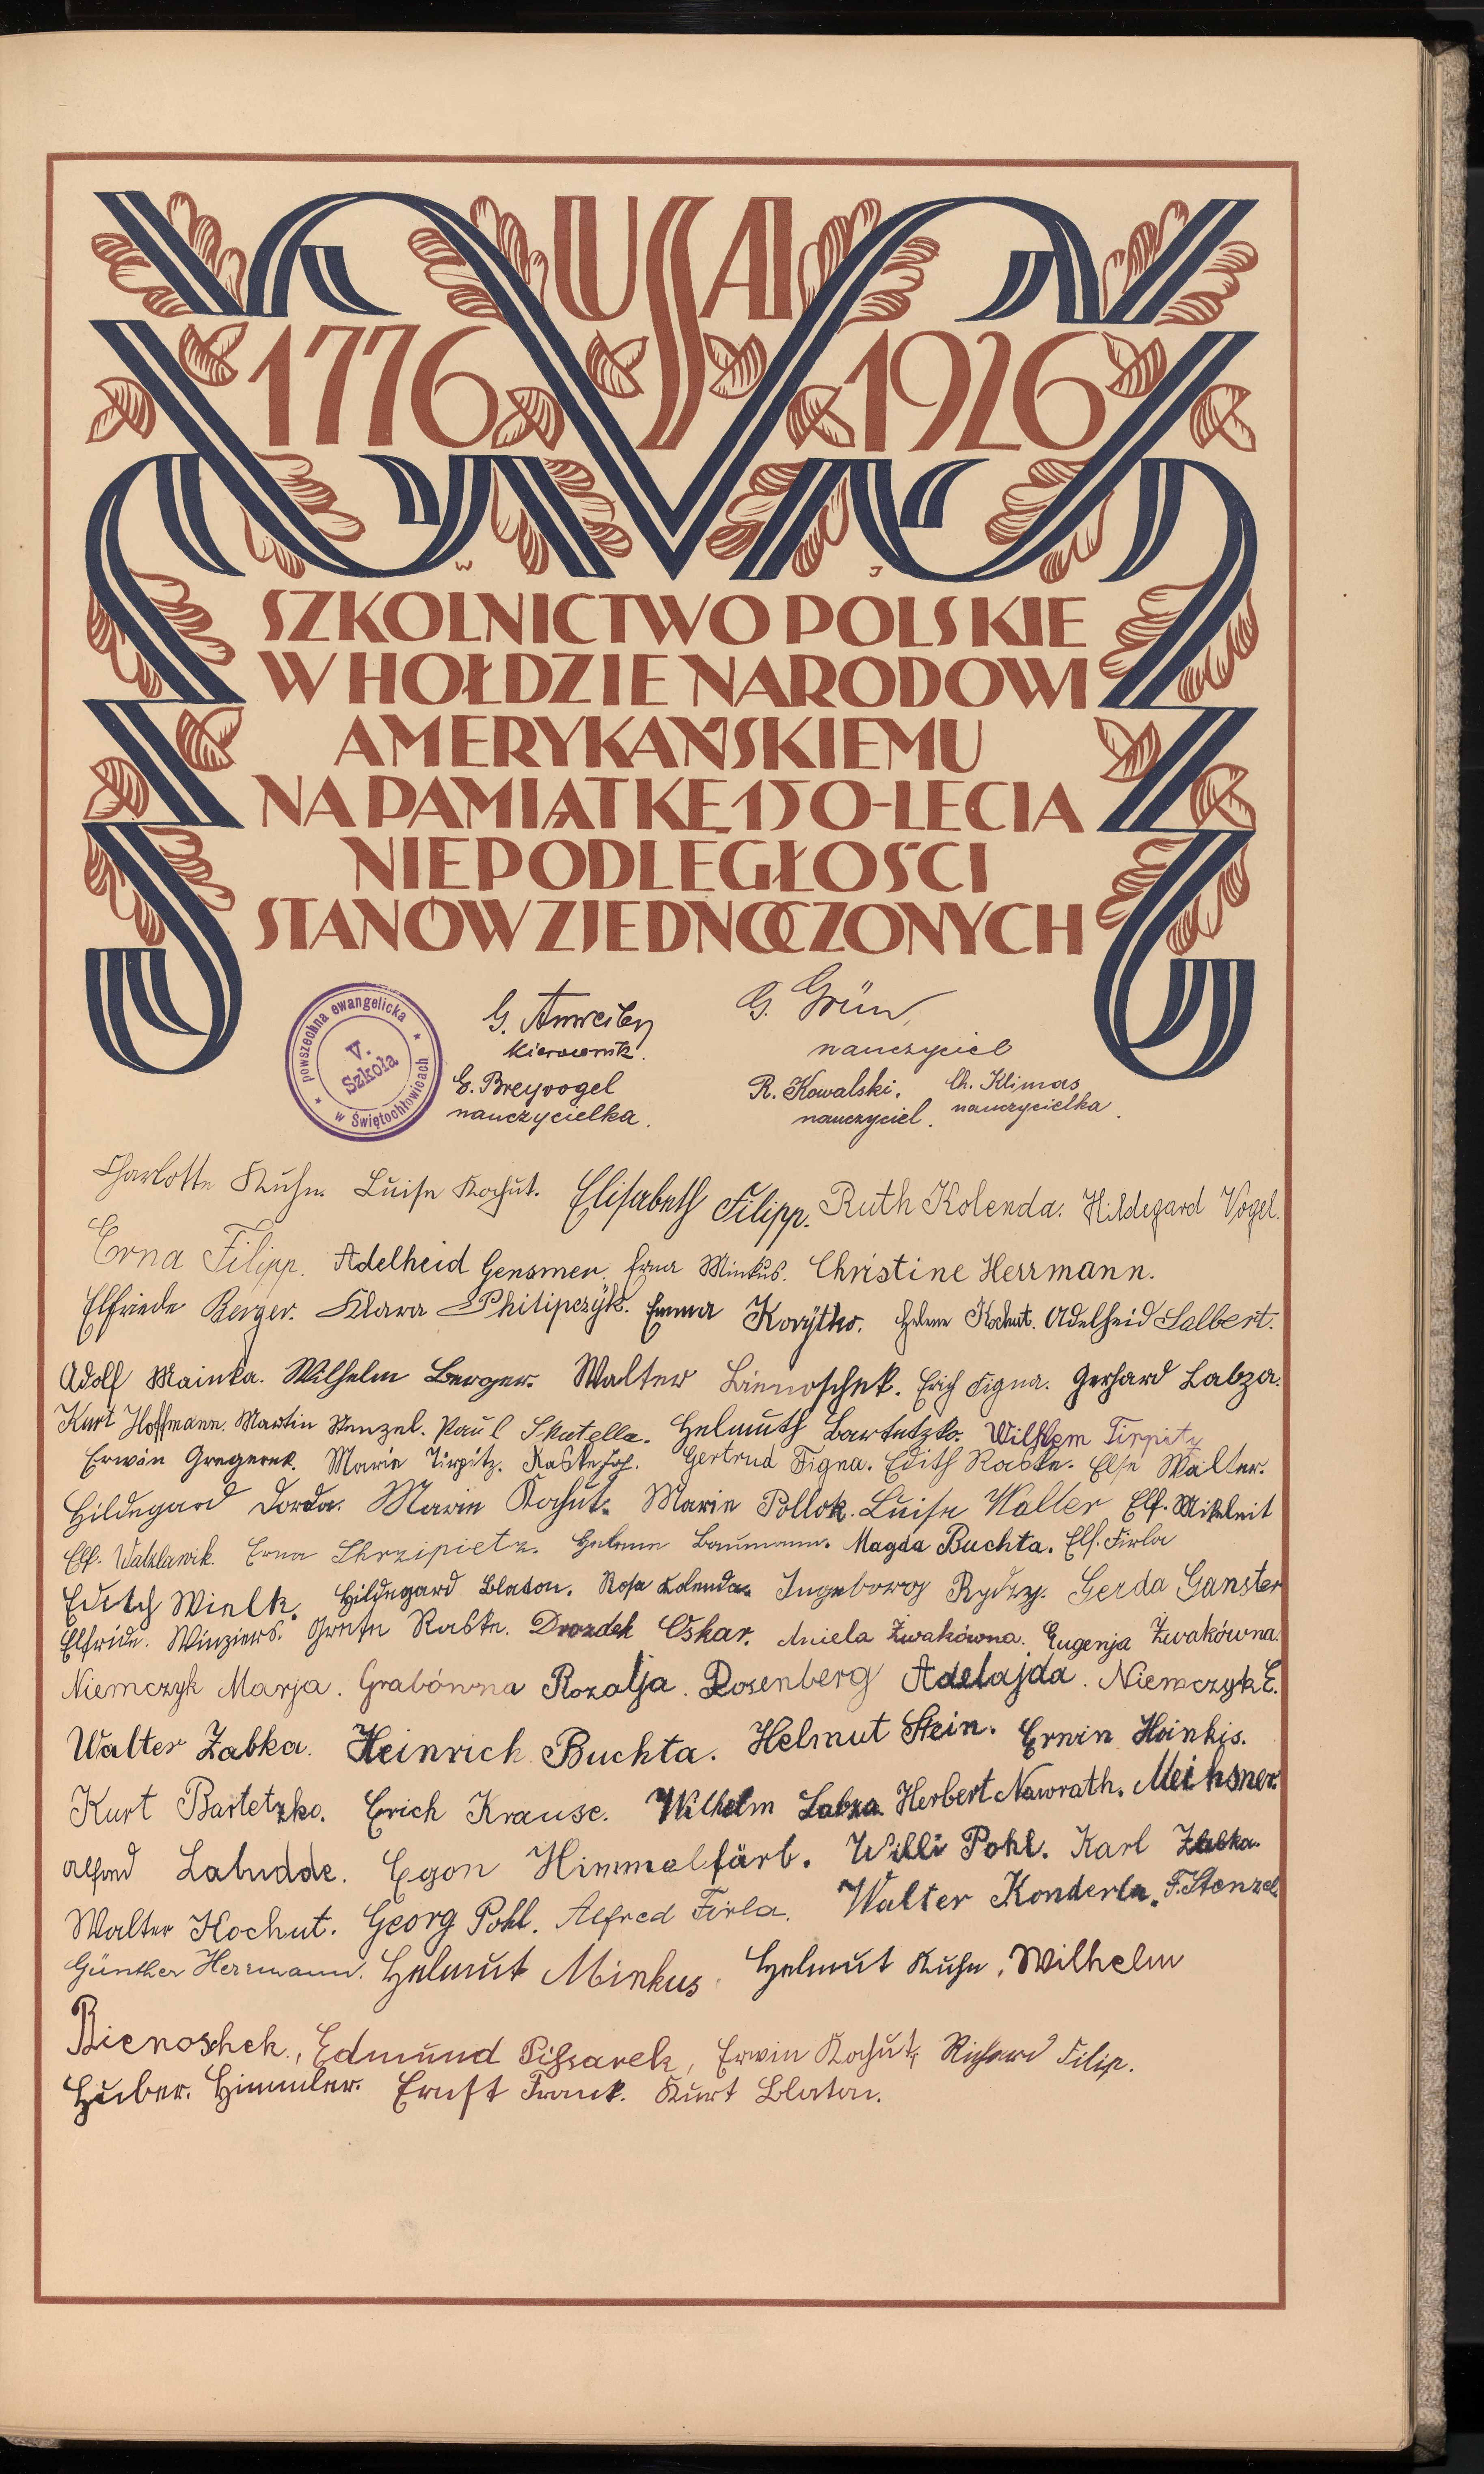 USA
1776 1926
W J
SZKOLNICTWO POLSKIE
W HOŁDZIE NARODOWI
AMERYKAŃSKIEMU
NA PAMIĄTKĘ 150-LECIA
NIEPODLEGŁOŚCI
STANÓW ZJEDNOCZONYCH
powszechna ewangelicka
V.
Szkoła
w Świętochłowicach
G. Anweiler G. Grün,
kierownik. nauczyciel
E. Breyvogel R. Kowalski. Ch. Klimas
nauczycielka. nauczyciel. nauczycielka.
Charlotte Kuhn. Luise Kochut. Elisabeth Filipp. Ruth Kolenda. Hildegard Vogel.
Erna Filipp. Adelheid Gensmer. Erna Minkus. Christine Herrmann.
Elfriede Berger. Klara Philipczÿk. Emma Helene Kochut. Adelheid Salbert.
Adolf Mainka. Wilhelm Berger. Walter Bienoschek. Erich Figna. Gerhard Labza.
Kurt Hoffmann. Martin Stenzel. Paul Skutella. Helmuth Bartetzko. Wilhlem Tirpitz
Erwin Gregerek. Marie Tirpitz. Gertrud Figna. Edith Raske. Else Walter.
Hildegard Dorda. Marie Kochut. Marie Pollok. Luise Walter Elf. Mikeleit
Elf. Watzlawik. Erna Skrzipietz. Helene Baumann. Magda Buchta. Elf. Firla
Edith Wielk. Hildegard Blaton. Rosa Kolenda. Ingeborg Rydzy. Gerda Ganster
Elfride. Winziers. Grete Raske. Drozdek Oskar. Aniela Żwakówna. Eugenja Żwakówna.
Niemczyk Marja. Grabówna Rozalja. Rosenberg Adelajda. Niemczyk E.
Walter Zabka. Heinrich Buchta. Helmut Stein. Erwin Hoinkis.
Kurt Bartetzko. Erich Krause. Wilhelm Labza. Herbert Nawrath. Meihsner
Alfred Labudde. Egon Himmelfärb. Willi Pohl. Karl Zabka.
Walter Kochut. Georg Pohl. Alfred Firla. Walter Konderla. F. Stenzel
Günther Herrmann. Helmut Minkus. Helmut Kuhn, Wilhelm
Bienoschek, Edmund Pissarek, Erwin Kochut, Richard Filip.
Huber. Himmler. Ernst Frank. Kurt Blaton.